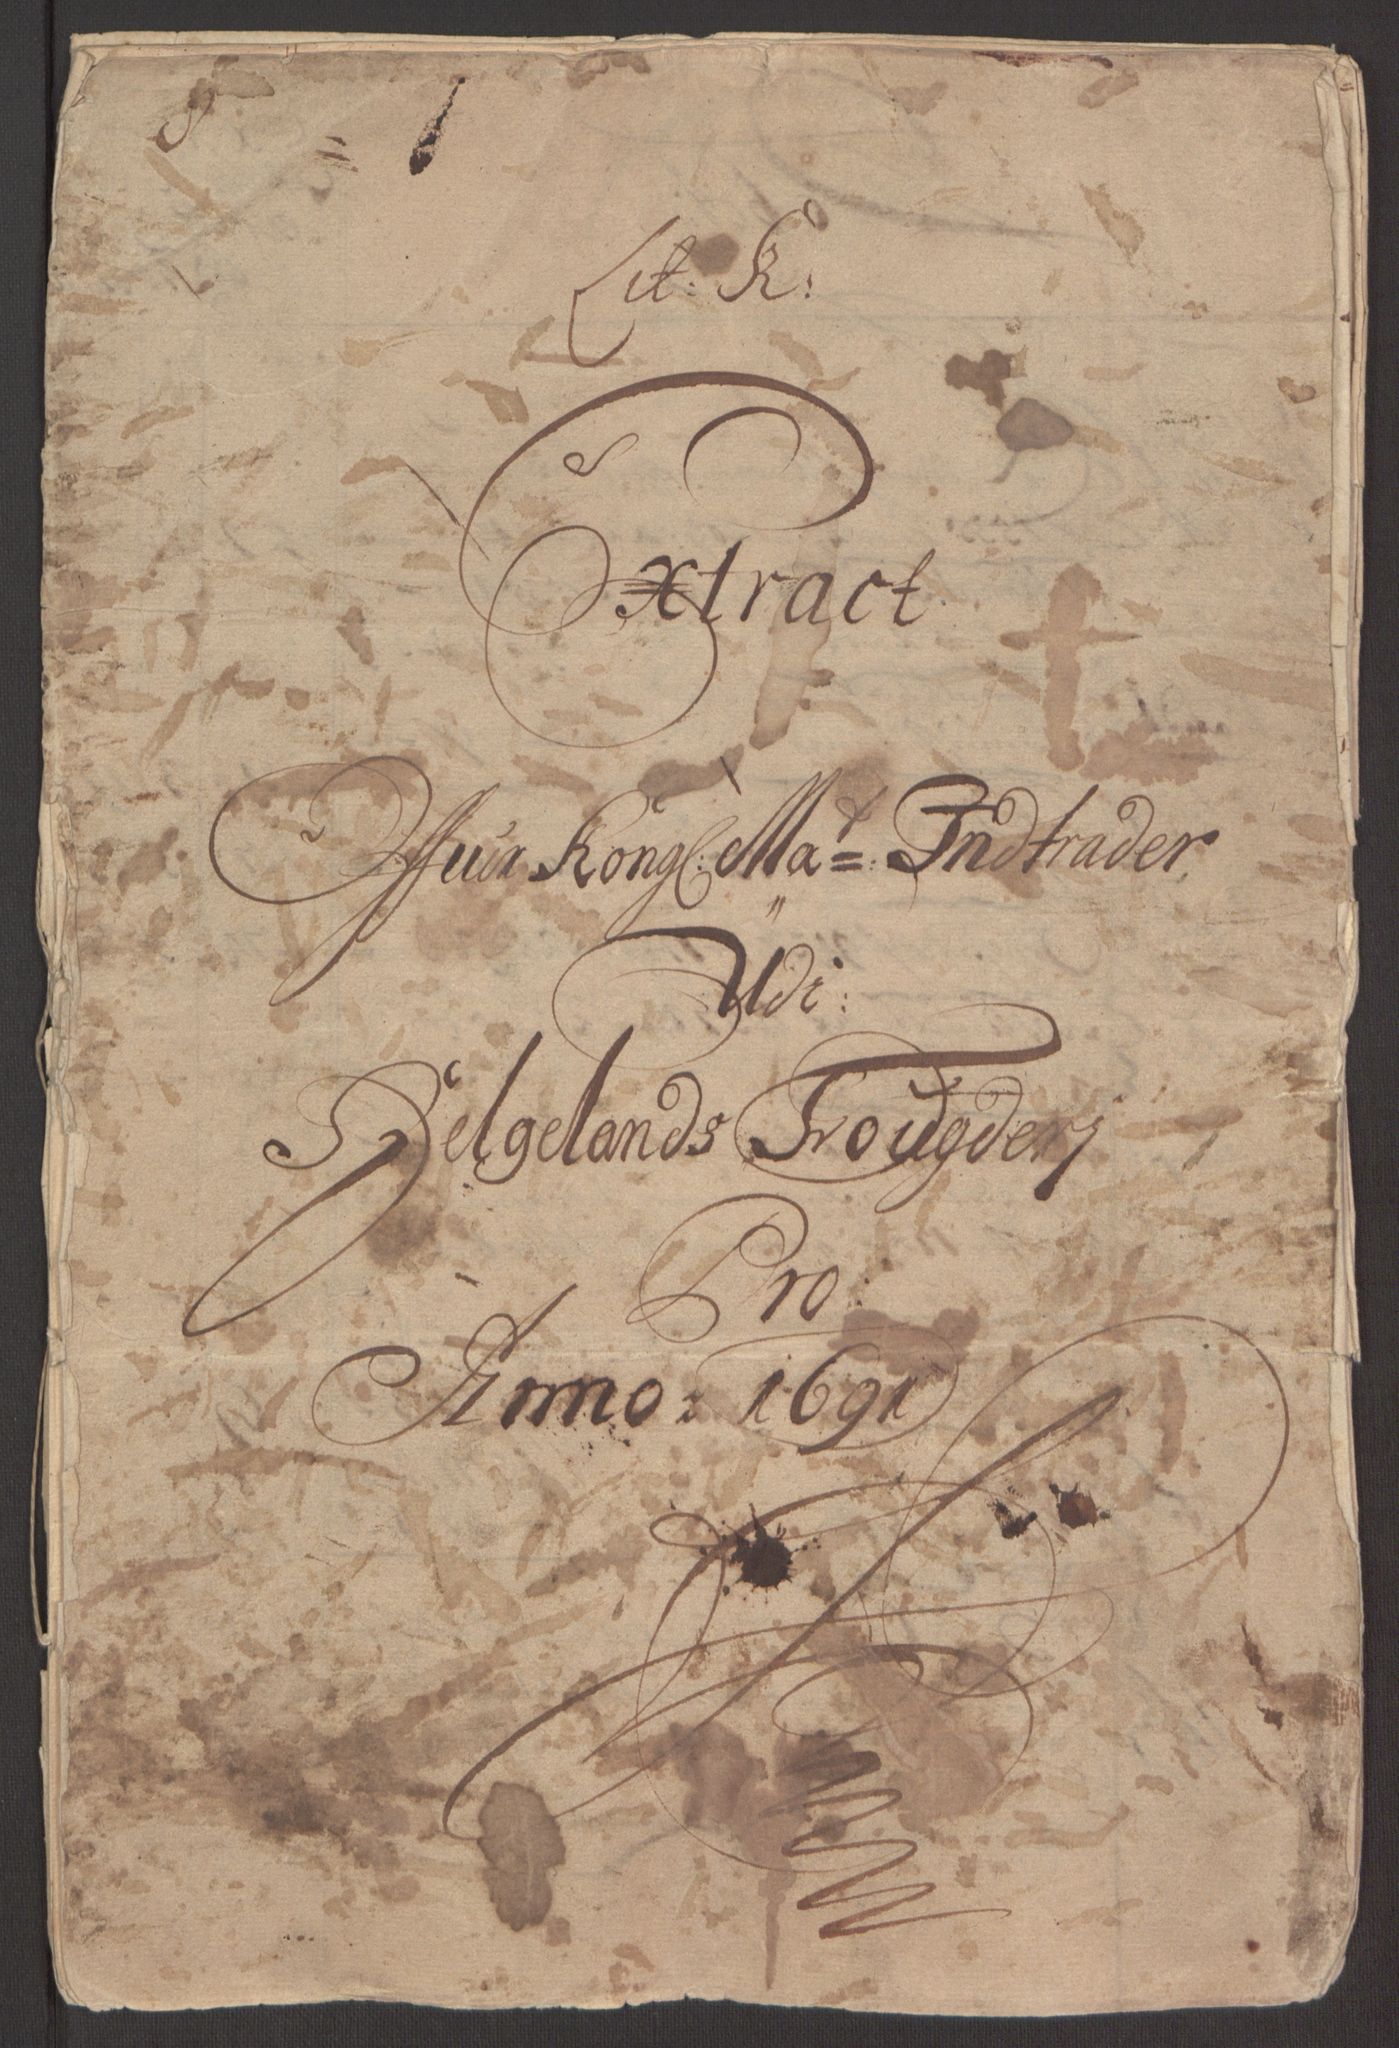 Lit: K:
Extract
Offuer Kongl: Ma:t Indtrader
Udi:
Helgelands Frougderj
Pro:
Anno: 1691